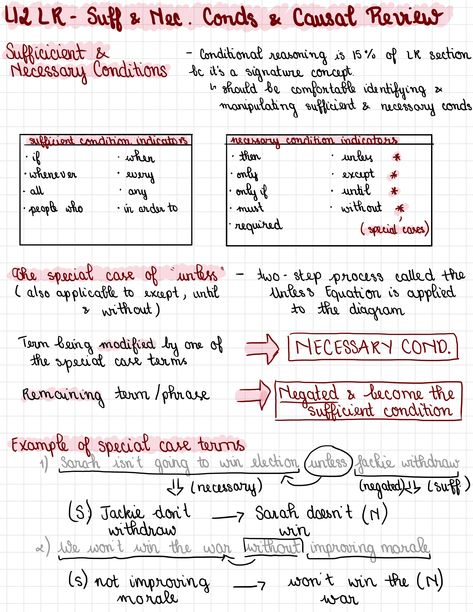 L12 LR - Suff & Nec. Conds & Causal Review
Sufficicient &
Necessary Conditions
- Conditional reasoning is 15% of LR section
bc it's a signature concept.
↳ should be comfortable identifying &
manipulating sufficient & necessary conds
sufficient condition indicators
· if · when
· whenever · every
· all · any
· people who · in order to
necessary condition indicators
· then · unless *
· only · except *
· only if · until *
· must · without *
· required (special cases)
The special case of "unless"
(also applicable to except, until
& without)
- two-step process called the
Unless Equation is applied
to the diagram
Term being modified by one of
the special case terms
⇒ NECESSARY COND.
Remaining term/phrase
⇒ Negated & become the
sufficient condition
Example of special case terms
1) Sarah isn't going to win election unless Jackie withdraw
(necessary) (negated) (suff)
(S) Jackie don't → Sarah doesn't (N)
withdraw win
2) We won't win the war without improving morale
(S) not improving → won't win the (N)
morale war